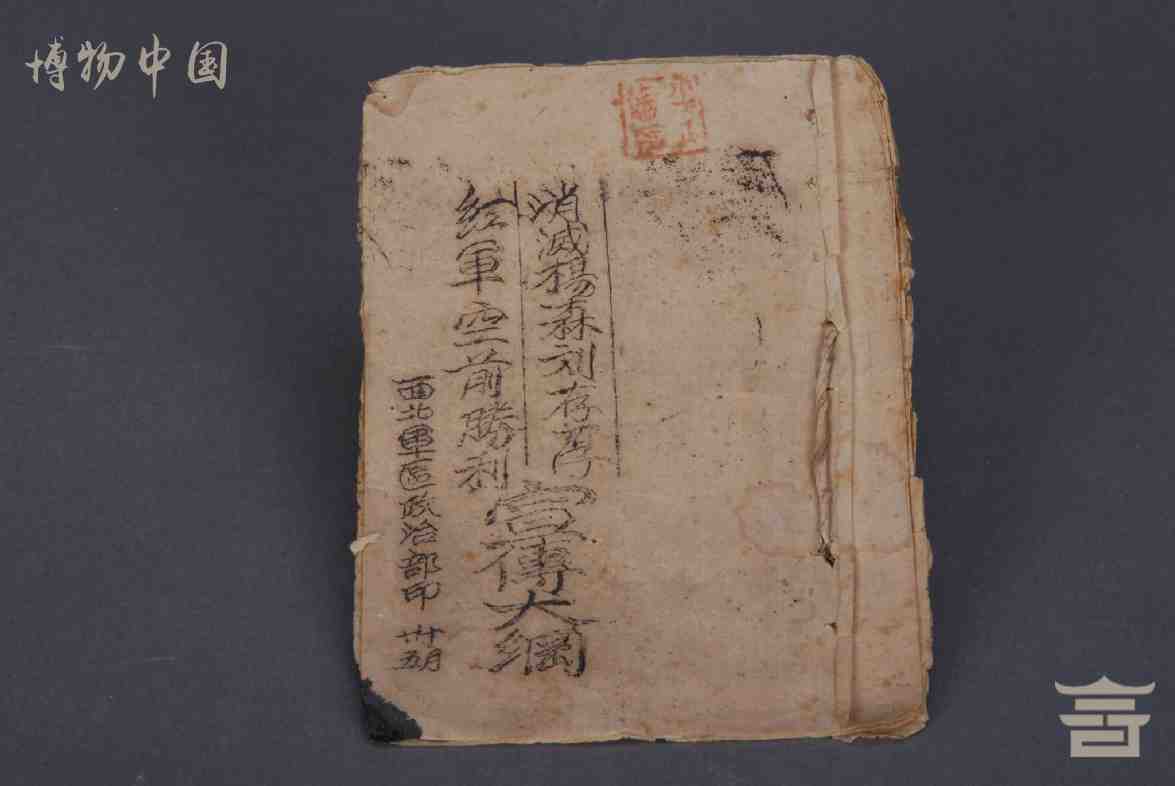 博物中国
消滅楊森刘存厚
红軍空前勝利
宣傳大綱
西北軍區政治部印
五月